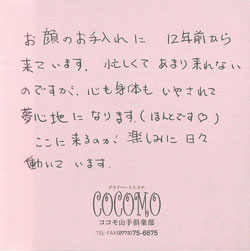 お顔のお手入れに 12年前から
来ています。忙しくてあまり来れない
のですが、心も身体もいやされて
夢心地になります。(ほんとです♡)
ここに来るのが楽しみに日々
働いています。
プライベートエステ
COCOMO
ココモ山手倶楽部
TEL・FAX(0773)75-6675